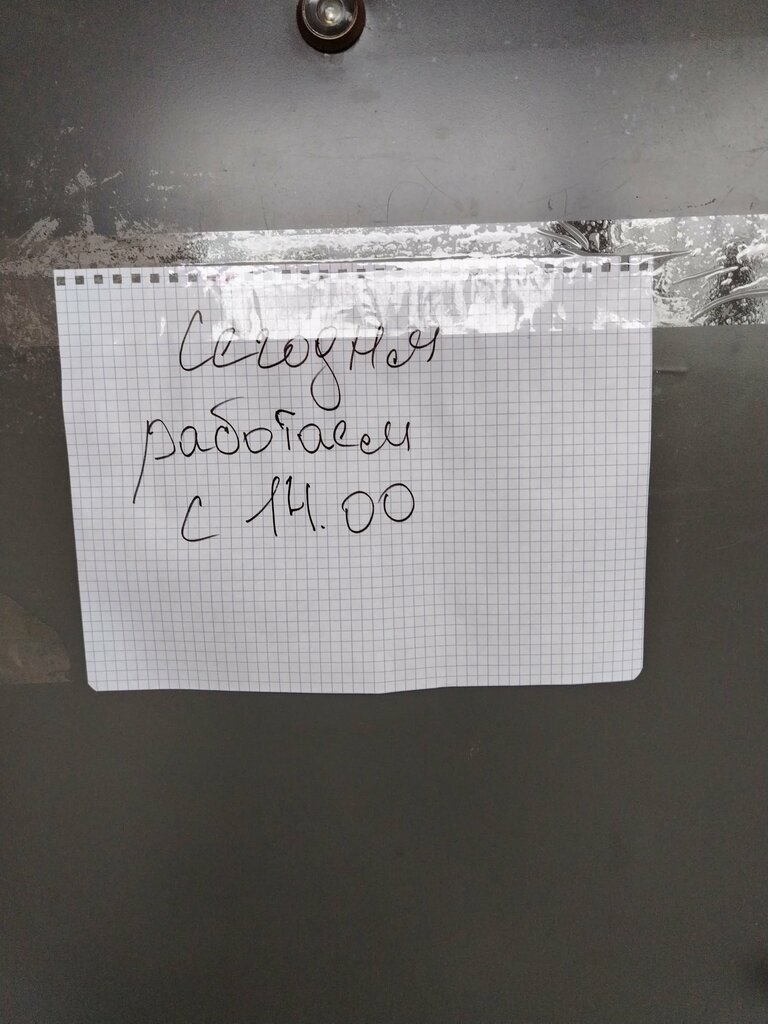 Сегодня
работаем
с 14.00